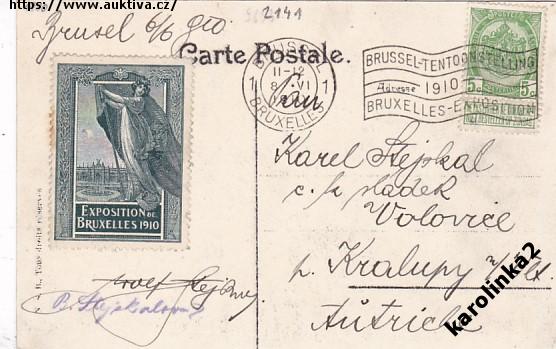 https://www.auktiva.cz/
2141
Brusel 6/6 910
Carte Postale.
BRUSSEL
11-12
8 VI
1 1
BRUXELLES
BRUSSEL-TENTOONSTELLING
1910
BRUXELLES-EXPOSITION
5c 5c
Pan
Karel Stejskal
c. k. sladek
Volovice
p. Kralupy n/Vlt.
Autrich
EXPOSITION DE
BRUXELLES 1910
Tous droits réservés
Stejskalova
karolinka2